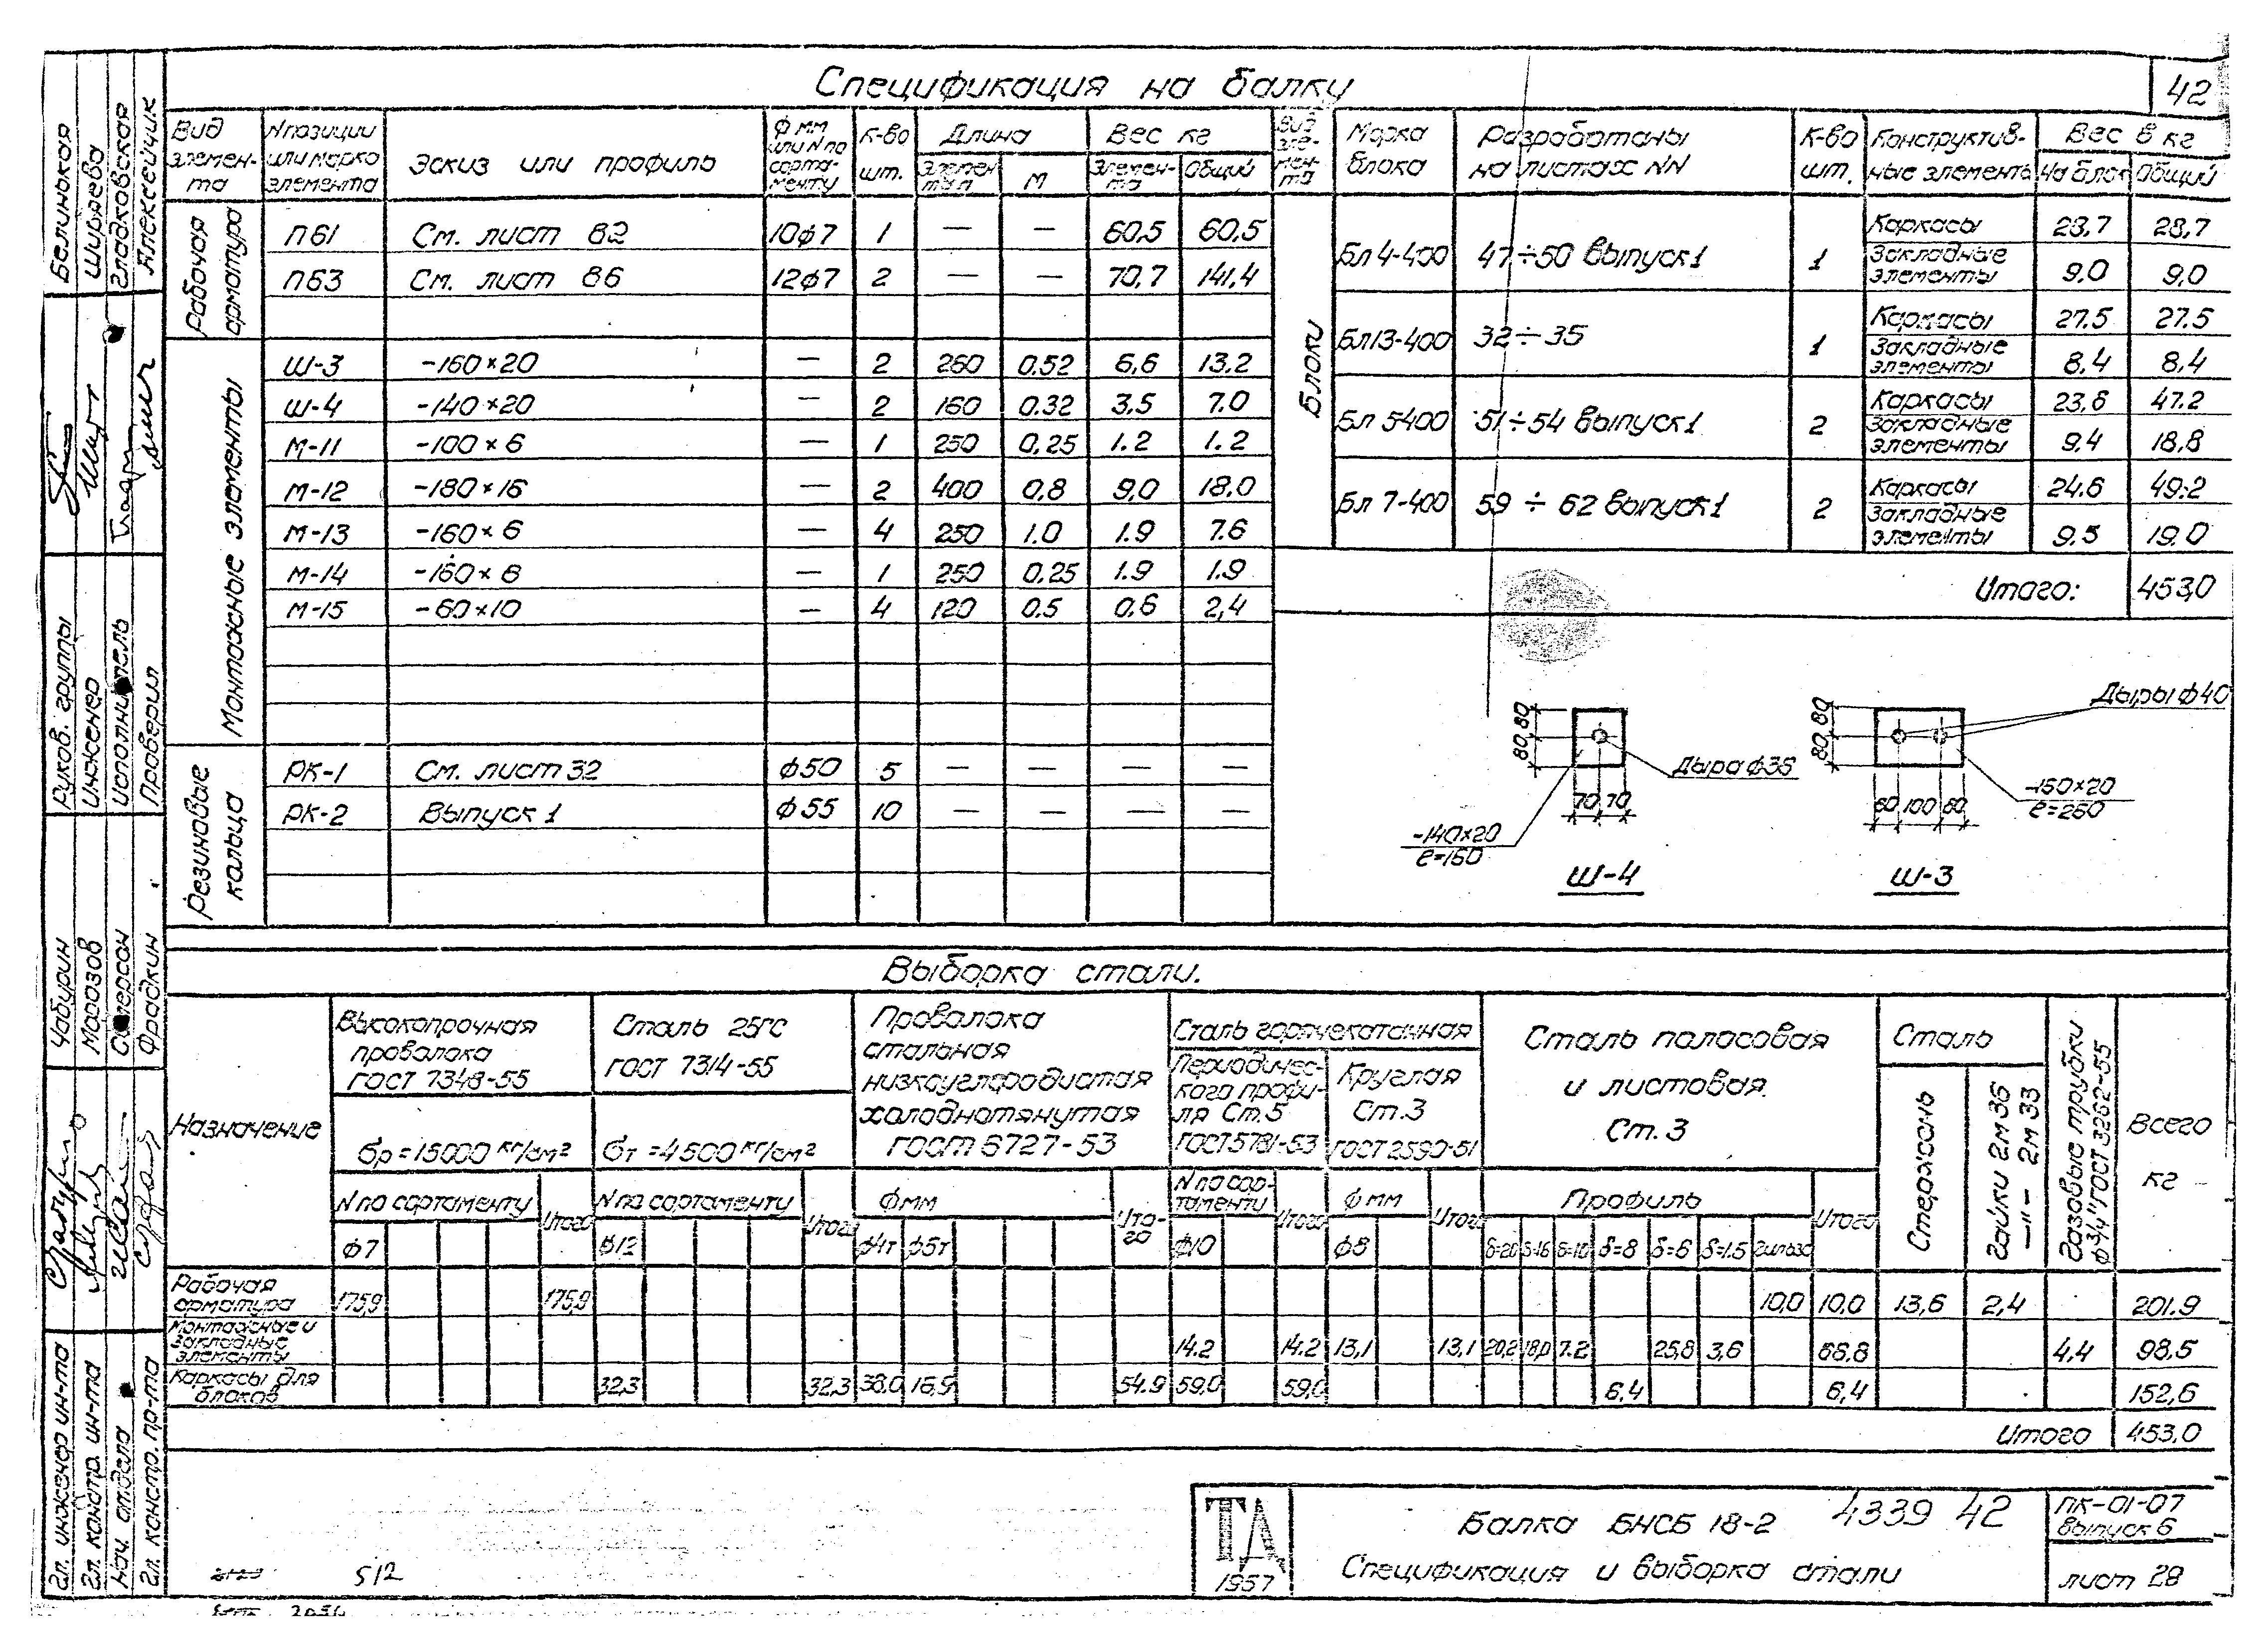 Спецификация на балку
42
Вид элемен-та | N позиции или марка элемента | Эскиз или профиль | ф мм или N по сорта-менту | К-во шт. | Длина | Элемен-та | м | Вес кг | Элемен-та | Общий
Рабочая арматура
П61 См. лист 82 10ф7 1 — — 60,5 60,5
П63 См. лист 86 12ф7 2 — — 70,7 141,4
Монтажные элементы
Ш-3 -160×20 — 2 260 0.52 6,6 13,2
Ш-4 -140×20 — 2 160 0.32 3,5 7.0
М-11 -100×6 — 1 250 0,25 1.2 1.2
М-12 -180×16 — 2 400 0,8 9,0 18.0
М-13 -160×6 — 4 250 1.0 1.9 7.6
М-14 -160×6 — 1 250 0,25 1.9 1.9
М-15 -60×10 — 4 120 0.5 0.6 2,4
Резиновые кольца
РК-1 См. лист 32 ф50 5 — — — —
РК-2 Выпуск 1 ф55 10 — — — —
Вид эле-мен-та | Марка блока | Разработаны на листах NN | К-во шт. | Конструктив-ные элементы | Вес в кг | На блок | Общий
Блоки
Бл 4-400 47÷50 выпуск 1 1 Каркасы 28,7 28,7
Закладные элементы 9.0 9,0
Бл 13-400 32÷35 1 Каркасы 27.5 27.5
Закладные элементы 8,4 8,4
Бл 5-400 51÷54 выпуск 1 2 Каркасы 23,6 47.2
Закладные элементы 9.4 18,8
Бл 7-400 59÷62 выпуск 1 2 Каркасы 24.6 49.2
Закладные элементы 9.5 19.0
Итого: 453,0
80 80
Дыра ф36
70 70
-140×20
ℓ=160
Ш-4
80 80
Дыры ф40
80 100 80
-160×20
ℓ=260
Ш-3
Выборка стали.
Назначение
Высокопрочная проволока ГОСТ 7348-55
σр=15000 кг/см²
N по сортаменту
ф7
Итого
Сталь 25ГС ГОСТ 7314-55
σт=4500 кг/см²
N по сортаменту
ф12
Итого
Проволока стальная низкоуглеродистая холоднотянутая ГОСТ 6727-53
ф мм
ф4т ф5т
Ито-го
Сталь горячекатанная
Периодичес-кого профи-ля Ст. 5 ГОСТ 5781-53
N по сор-таменту
ф10
Итого
Круглая Ст.3 ГОСТ 2590-51
ф мм
ф8
Итого
Сталь полосовая и листовая Ст. 3
Профиль
δ=20 δ=16 δ=10 δ=8 δ=6 δ=1.5 Гильза
Итого
Сталь
Стержсталь
Гайки 2м 36
—"— 2м 33
Газовые трубки ф3/4" ГОСТ 3262-55
Всего кг
Рабочая арматура 175,9 175,9 10,0 10,0 13,6 2,4 201.9
Монтажные и закладные элементы 14.2 14.2 13,1 13,1 20,2 18,0 7.2 25,8 3,6 4,4 98,5
Каркасы для блоков 32,3 32,3 38.0 16,9 54.9 59.0 59,0 6,4 6,4 152,6
Итого 453,0
ТД
1957
Балка БНСБ 18-2
4339 42
Спецификация и выборка стали
ПК-01-07
Выпуск 6
лист 28
512
Гл. инженер ин-та Чабурин
Гл. констр. ин-та Морозов
Нач. отдела
Гл. констр. пр-та Фрадкин
Руков. группы Белинькая
Инженер Ширяева
Исполнитель Гладковская
Проверил Алексейчик